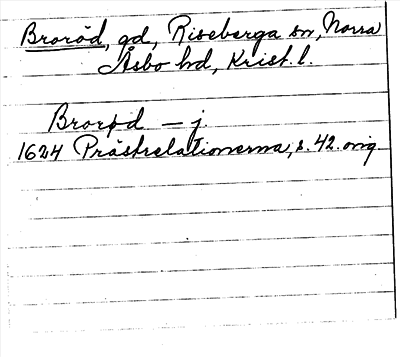 Broröd, gd, Riseberga sn, Norra
Åsbo hd, Krist. l.
Brorød — j
1624 Prästrelationerna, s. 42. orig